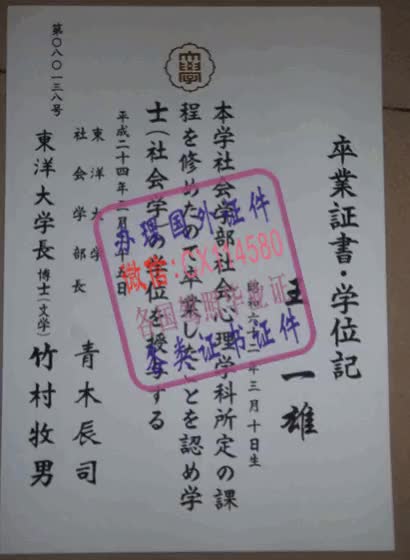 卒業証書・学位記
王 一雄
年三月十日生
本学社会学部社会心理学科所定の課
程を修めたので卒業したことを認め学
士(社会学)の学位を授与する
平成二十四年 月 五日
東洋大学
社会学部長 青木辰司
東洋大学長 博士(文学) 竹村牧男
第〇八〇一三八号
办理国外证件
微信:CX114580
各国驾照毕业证
各类证书证件